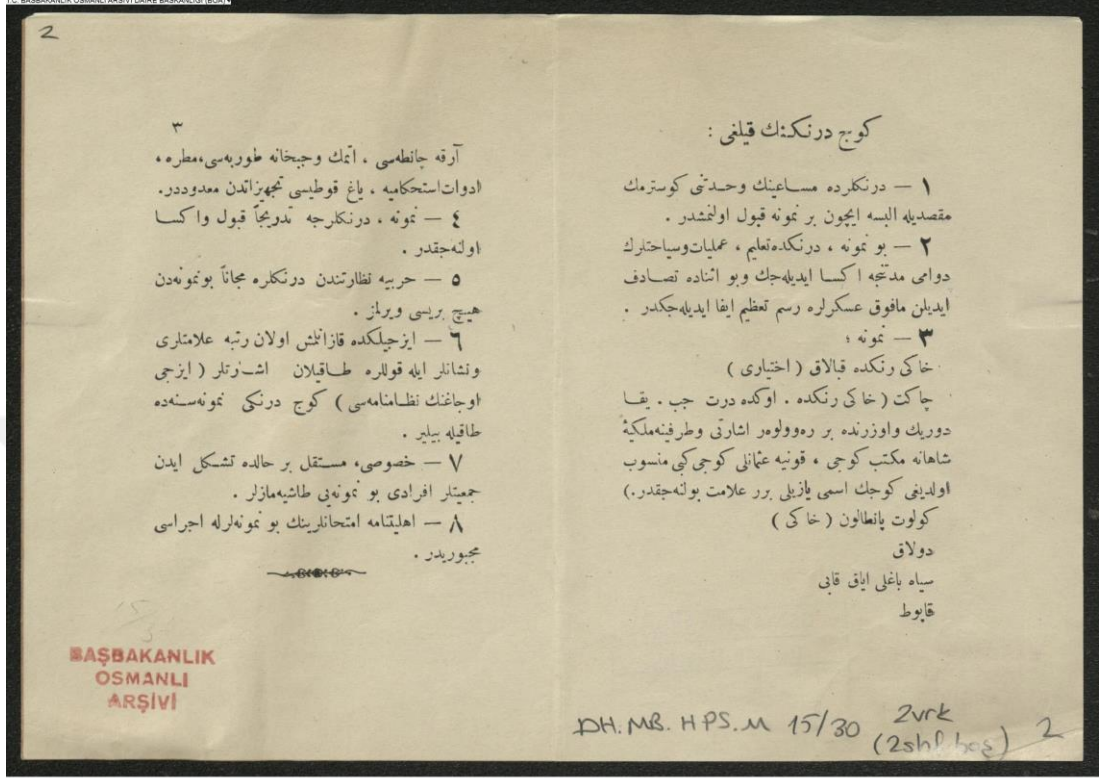 T.C. BAŞBAKANLIK OSMANLI ARŞİVİ DAİRE BAŞKANLIĞI (BOA)
2
كوج درنكنك قيلغى :
١ — درنكلرده مساعينك وحدتنى كوسترمك
مقصديله البسه ايچون بر نمونه قبول اولنمشدر .
٢ — بو نمونه ، درنكده تعليم ، عمليات وسياحتلرك
دوامى مدتنجه اكسا ايديله جك وبو اثناده تصادف
ايديلن مافوق عسكرلره رسم تعظيم ايفا ايديله جكدر .
٣ — نمونه ؛
خاكى رنكده قبالاق ( اختيارى )
چاكت ( خاكى رنكده . اوكده درت جب . يقا
دوريك واوزرنده بر ره وولوه ر اشارتى وطرفينه ملكيۀ
شاهانه مكتب كوجى ، قونيه عثمانلى كوجى كبى منسوب
اولديغى كوجك اسمى يازيلى برر علامت بولنه جقدر .)
كولوت پانطالون ( خاكى )
دولاق
سياه باغلى اياق قابى
قاپوط
٣
آرقه چانطه سى ، اتمك وجبخانه طوربه سى ، مطره ،
ادوات استحكاميه ، ياغ قوطيسى تجهيزاتدن معدوددر.
٤ — نمونه ، درنكلرجه تدريجاً قبول واكسا
اولنه جقدر .
٥ — حربيه نظارتندن درنكلره مجاناً بو نمونه دن
هيچ بريسى ويرلمز .
٦ — ايزجيلكده قازانلمش اولان رتبه علامتلرى
ونشانلر ايله قوللره طاقيلان اشارتلر ( ايزجى
اوجاغنك نظامنامه سى ) كوج درنكى نمونه سنه ده
طاقيله بيلير .
٧ — خصوصى، مستقل بر حالده تشكل ايدن
جمعيتلر افرادى بو نمونه يى طاشيه مازلر .
٨ — اهليتنامه امتحانلرينك بو نمونه لرله اجراسى
مجبوريدر .
BAŞBAKANLIK
OSMANLI
ARŞİVİ
DH. MB. HPS. M 15/30 2vrk
(2shf. boş) 2